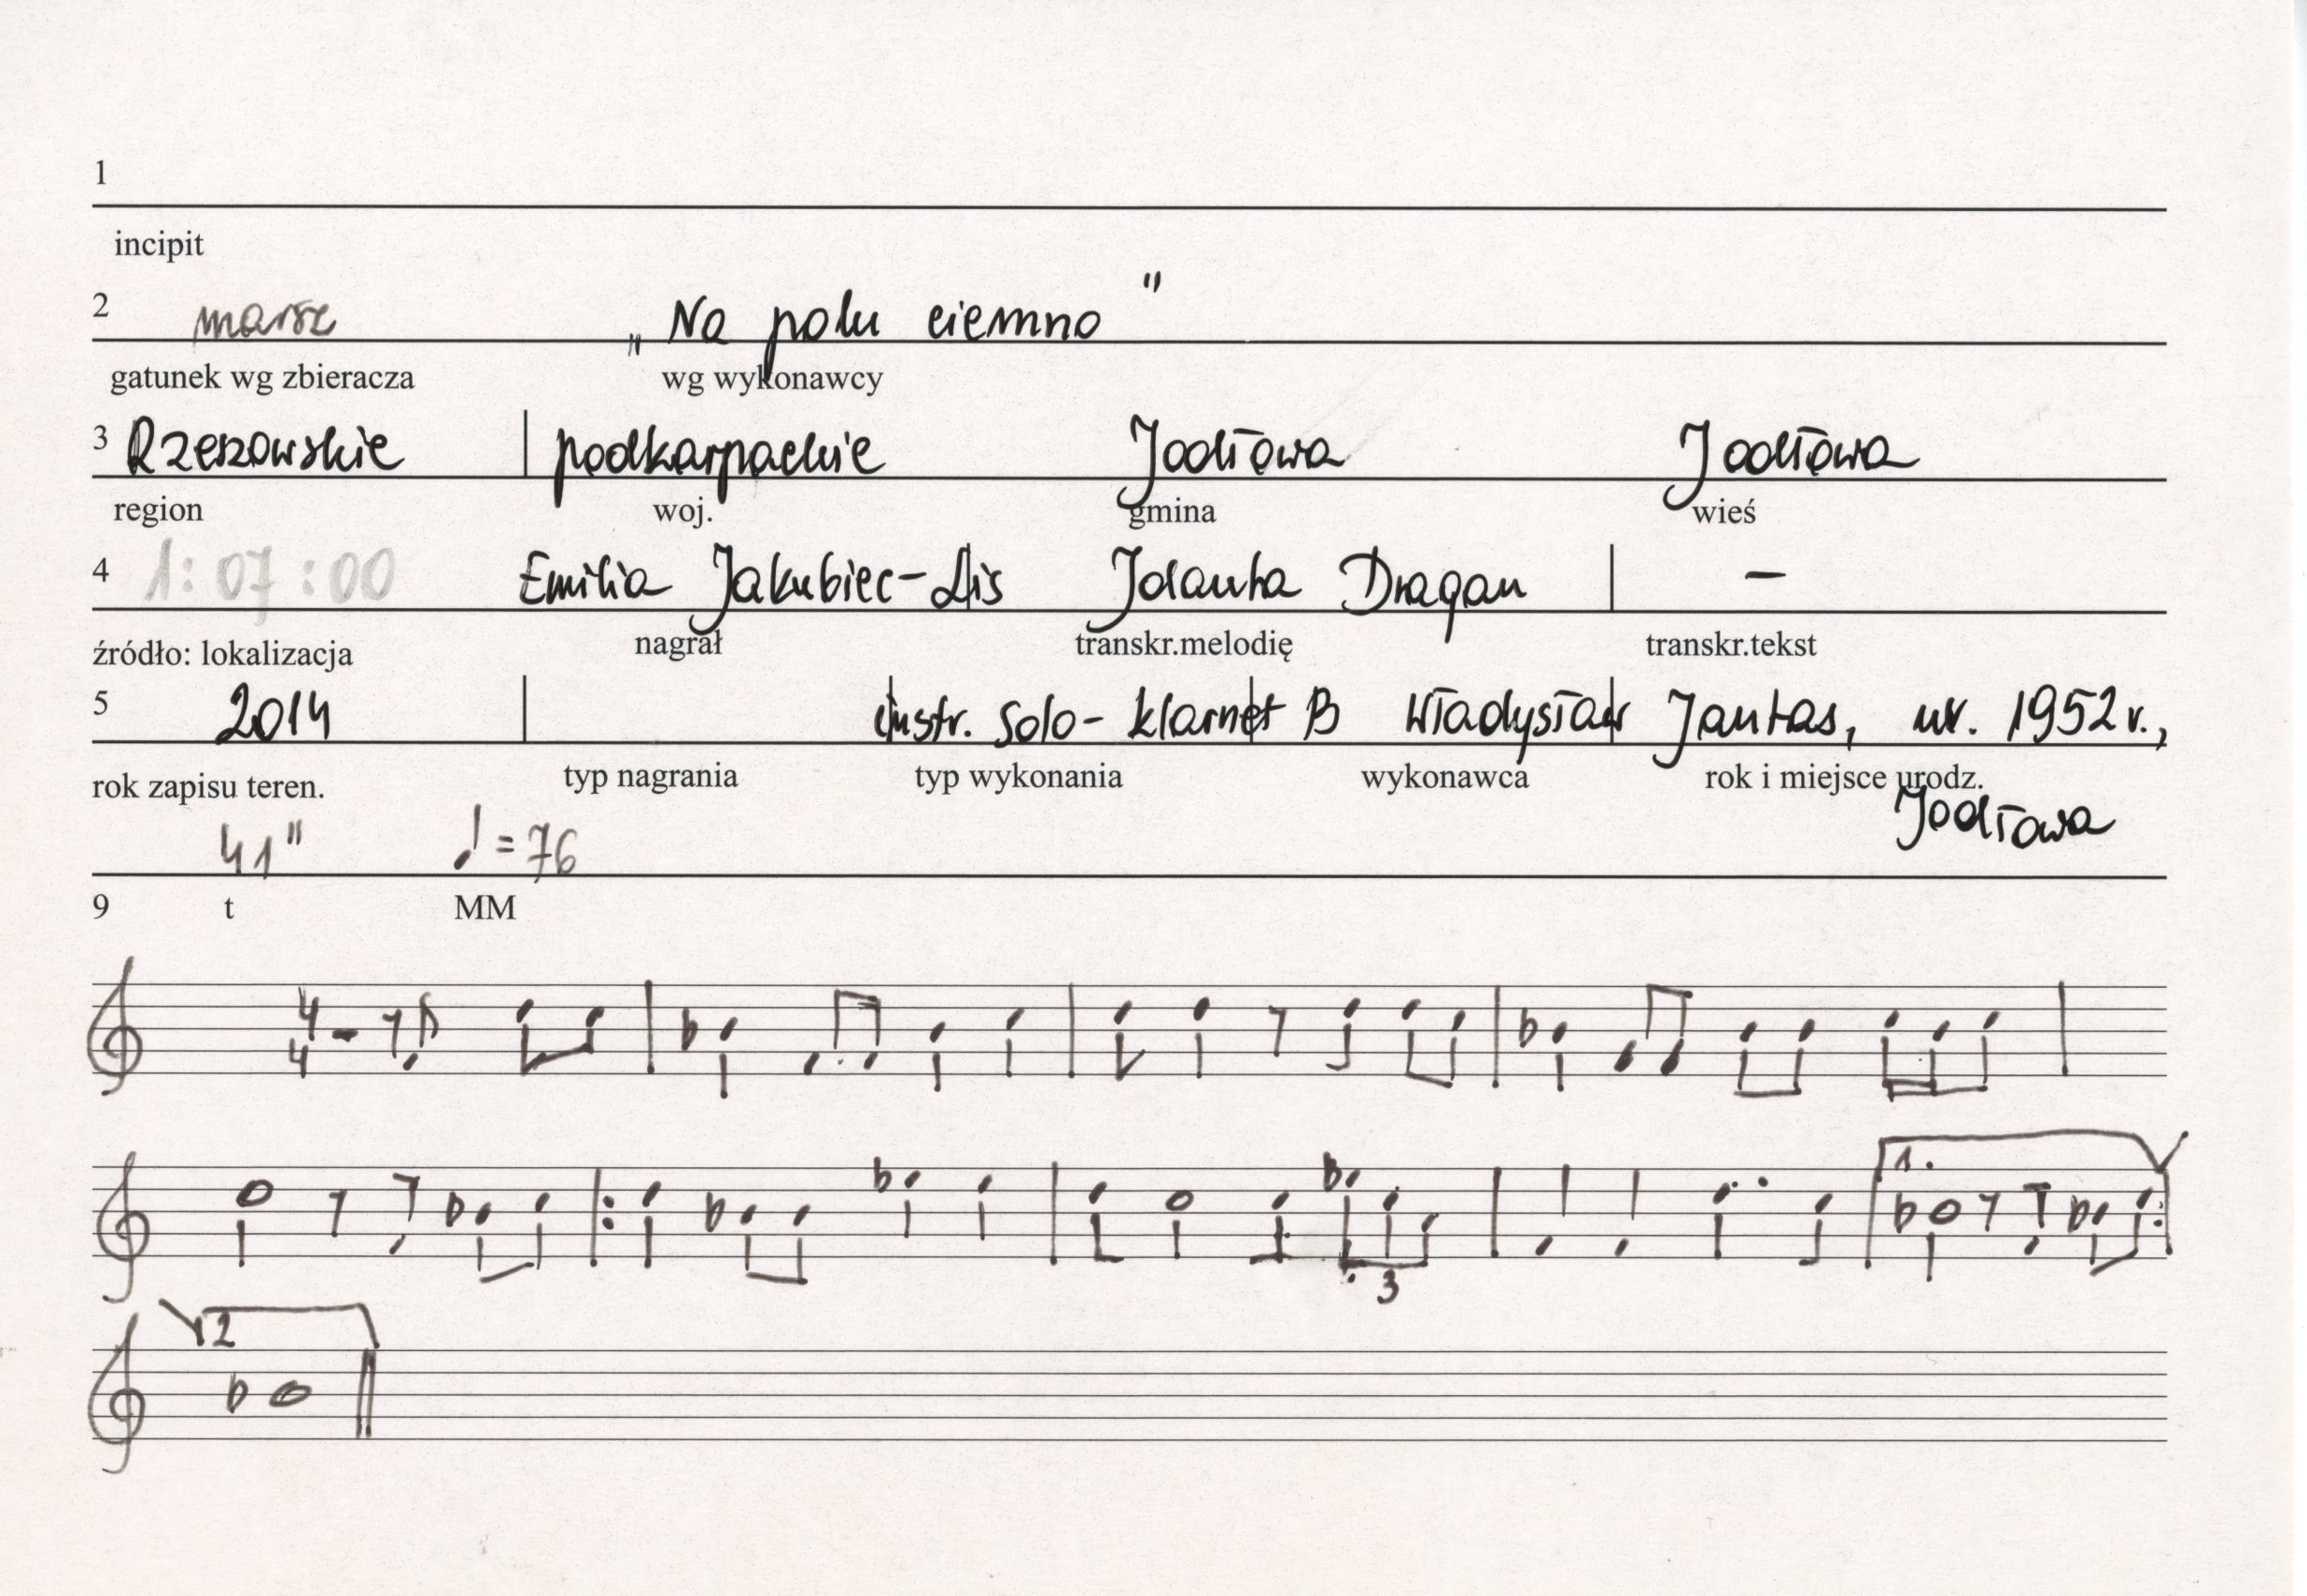 1
incipit
2 marsz „Na polu ciemno"
gatunek wg zbieracza wg wykonawcy
3 Rzeszowskie podkarpackie Jodłowa Jodłowa
region woj. gmina wieś
4 1:07:00 Emilia Jakubiec-Lis Jolanta Dragan –
źródło: lokalizacja nagrał transkr.melodię transkr.tekst
5 2014 instr. solo- klarnet B Władysław Jantas, ur. 1952 r.,
rok zapisu teren. typ nagrania typ wykonania wykonawca rok i miejsce urodz.
Jodłowa
41" ♩ = 76
9 t MM
4
4
1.
3
2